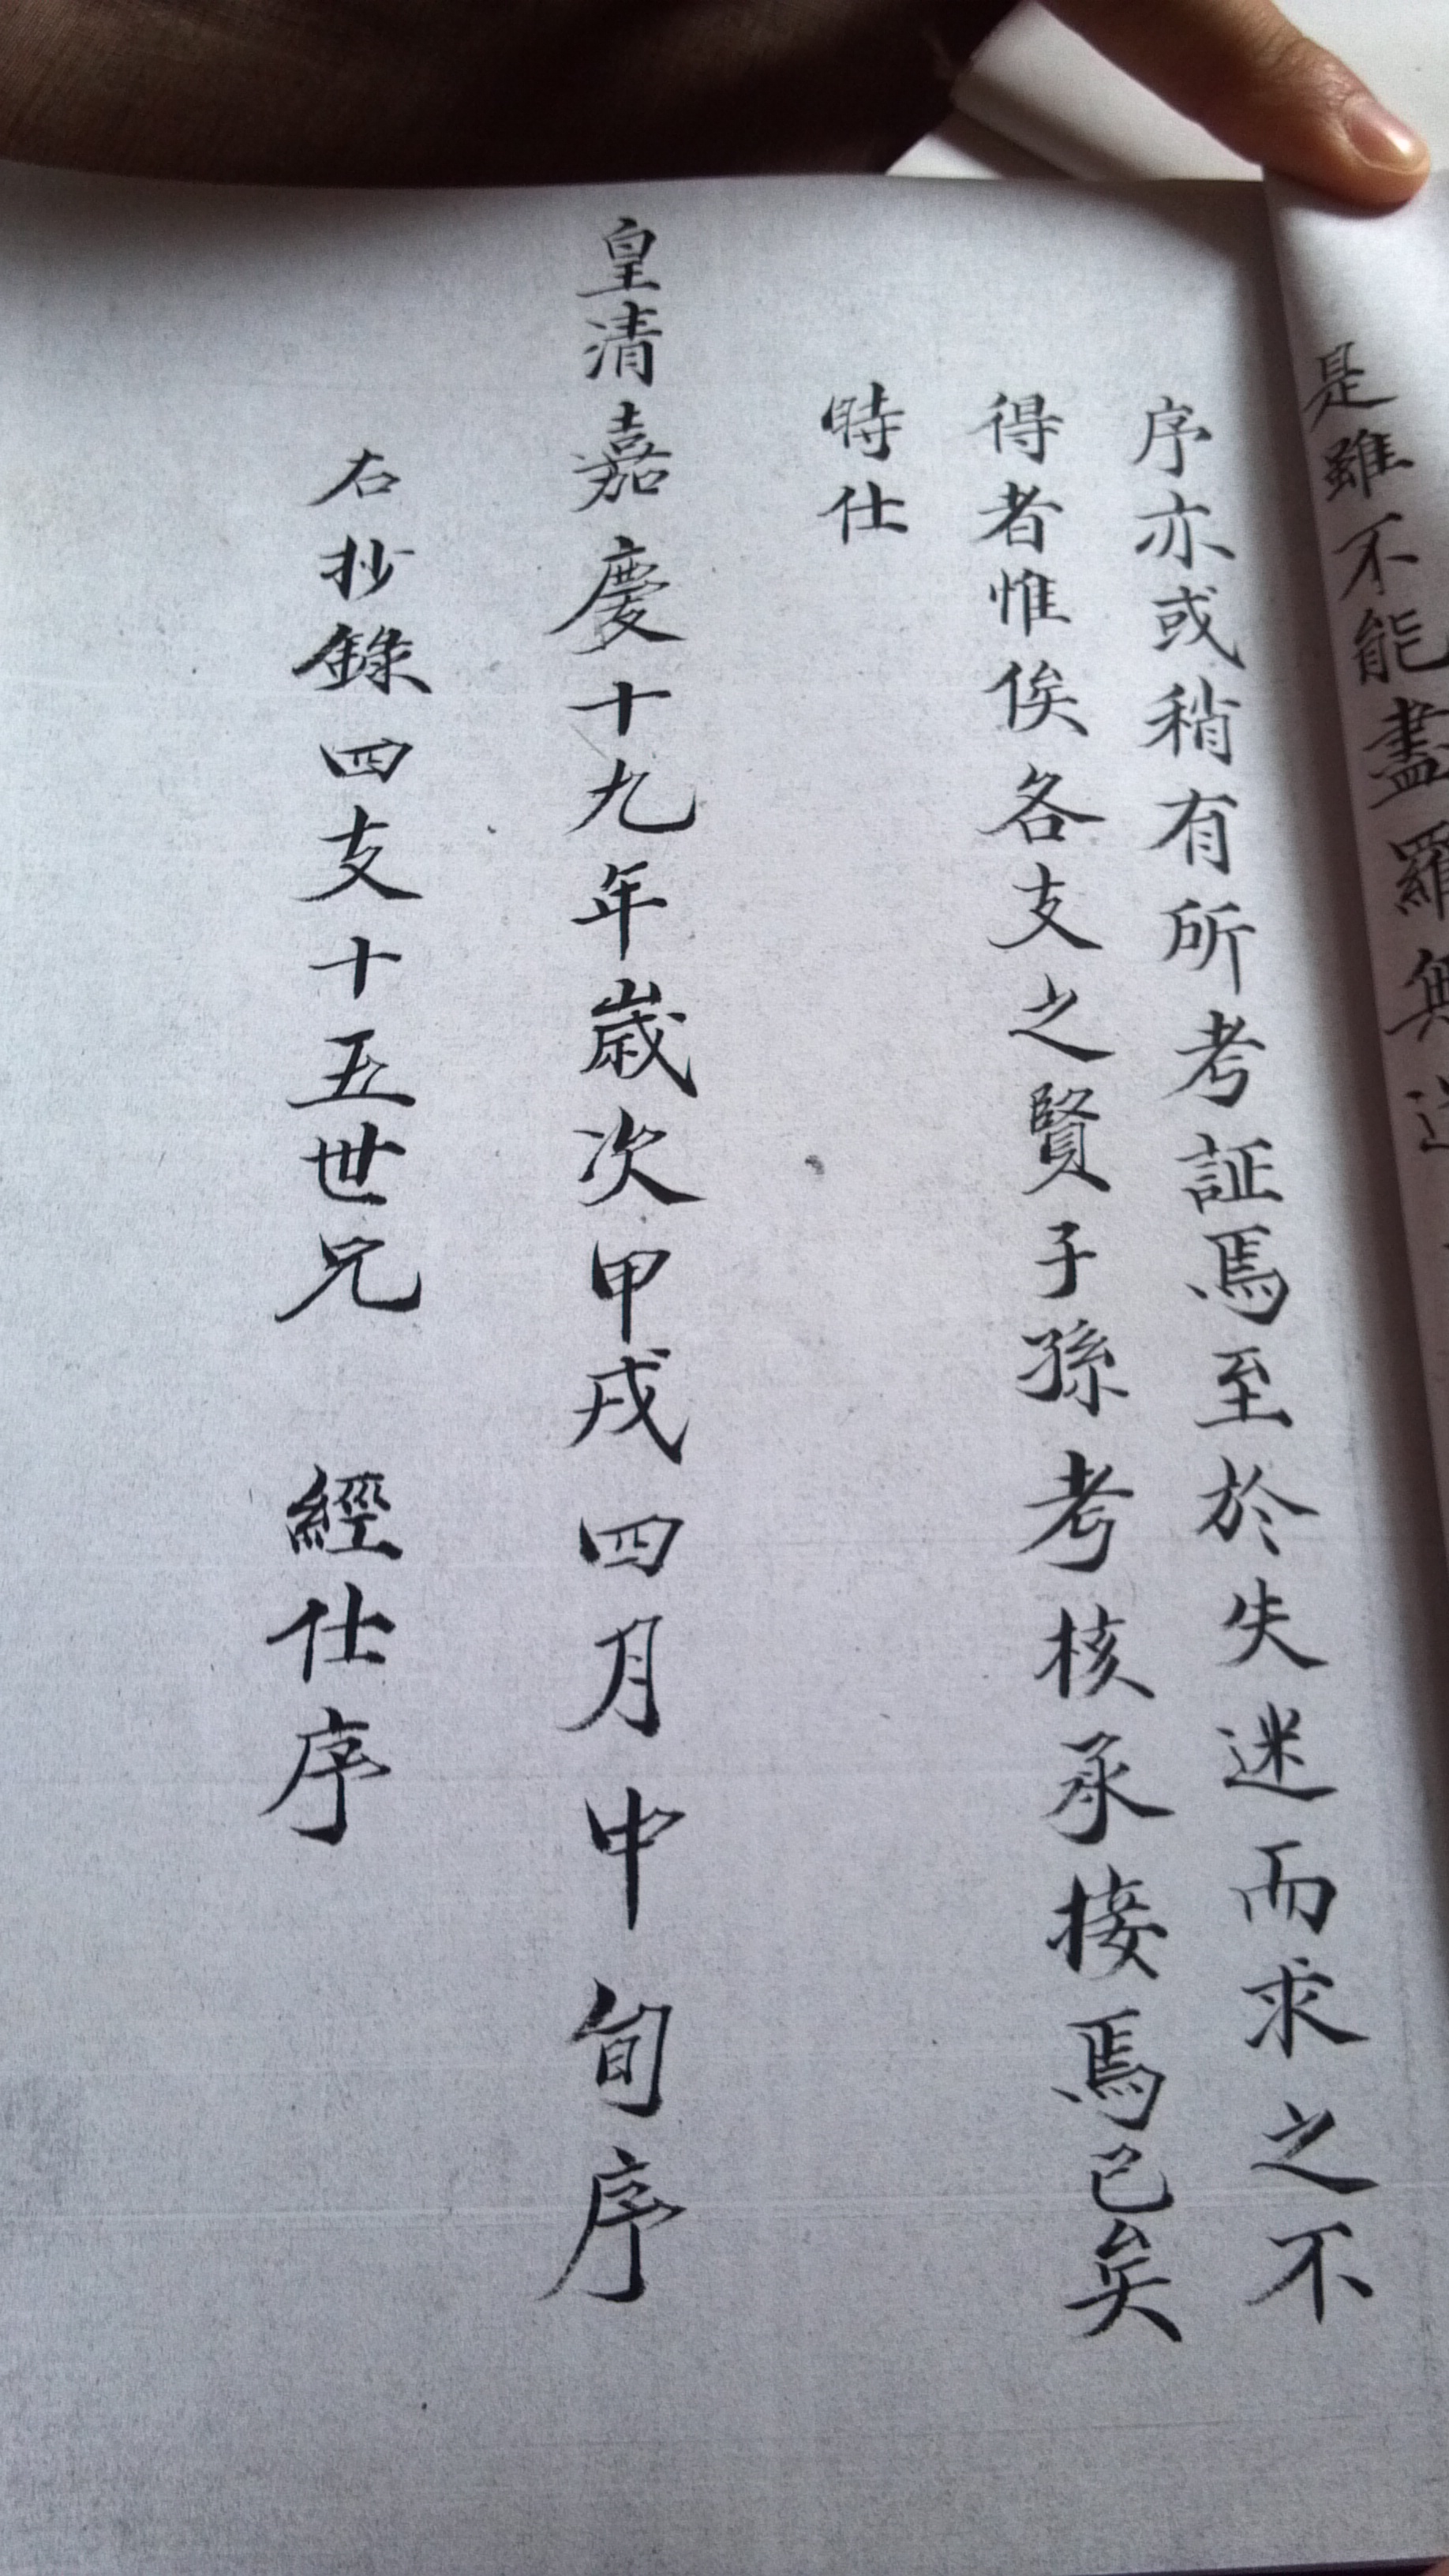 是雖不能盡羅無
序亦或稍有所考証焉至於失迷而求之不
得者惟俟各支之賢子孫考核承接焉已矣
時仕
皇清嘉慶十九年歲次甲戌四月中旬序
右抄錄四支十五世兄 經仕序